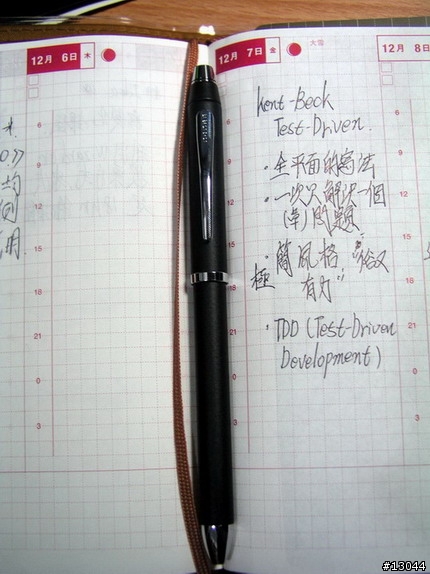 12月 6日 木
6
9
12
15
18
21
0
3
均
同
用
CROSS
12月 7日 金
大雪
6
9
12
15
18
21
0
3
Kent-Beck
Test-Driven.
・全平面的寫法
・一次只解決一個
(單)問題
・簡風格 "俗又
極 有力"
・TDD (Test-Driven
Development)
12月 8日
#13044